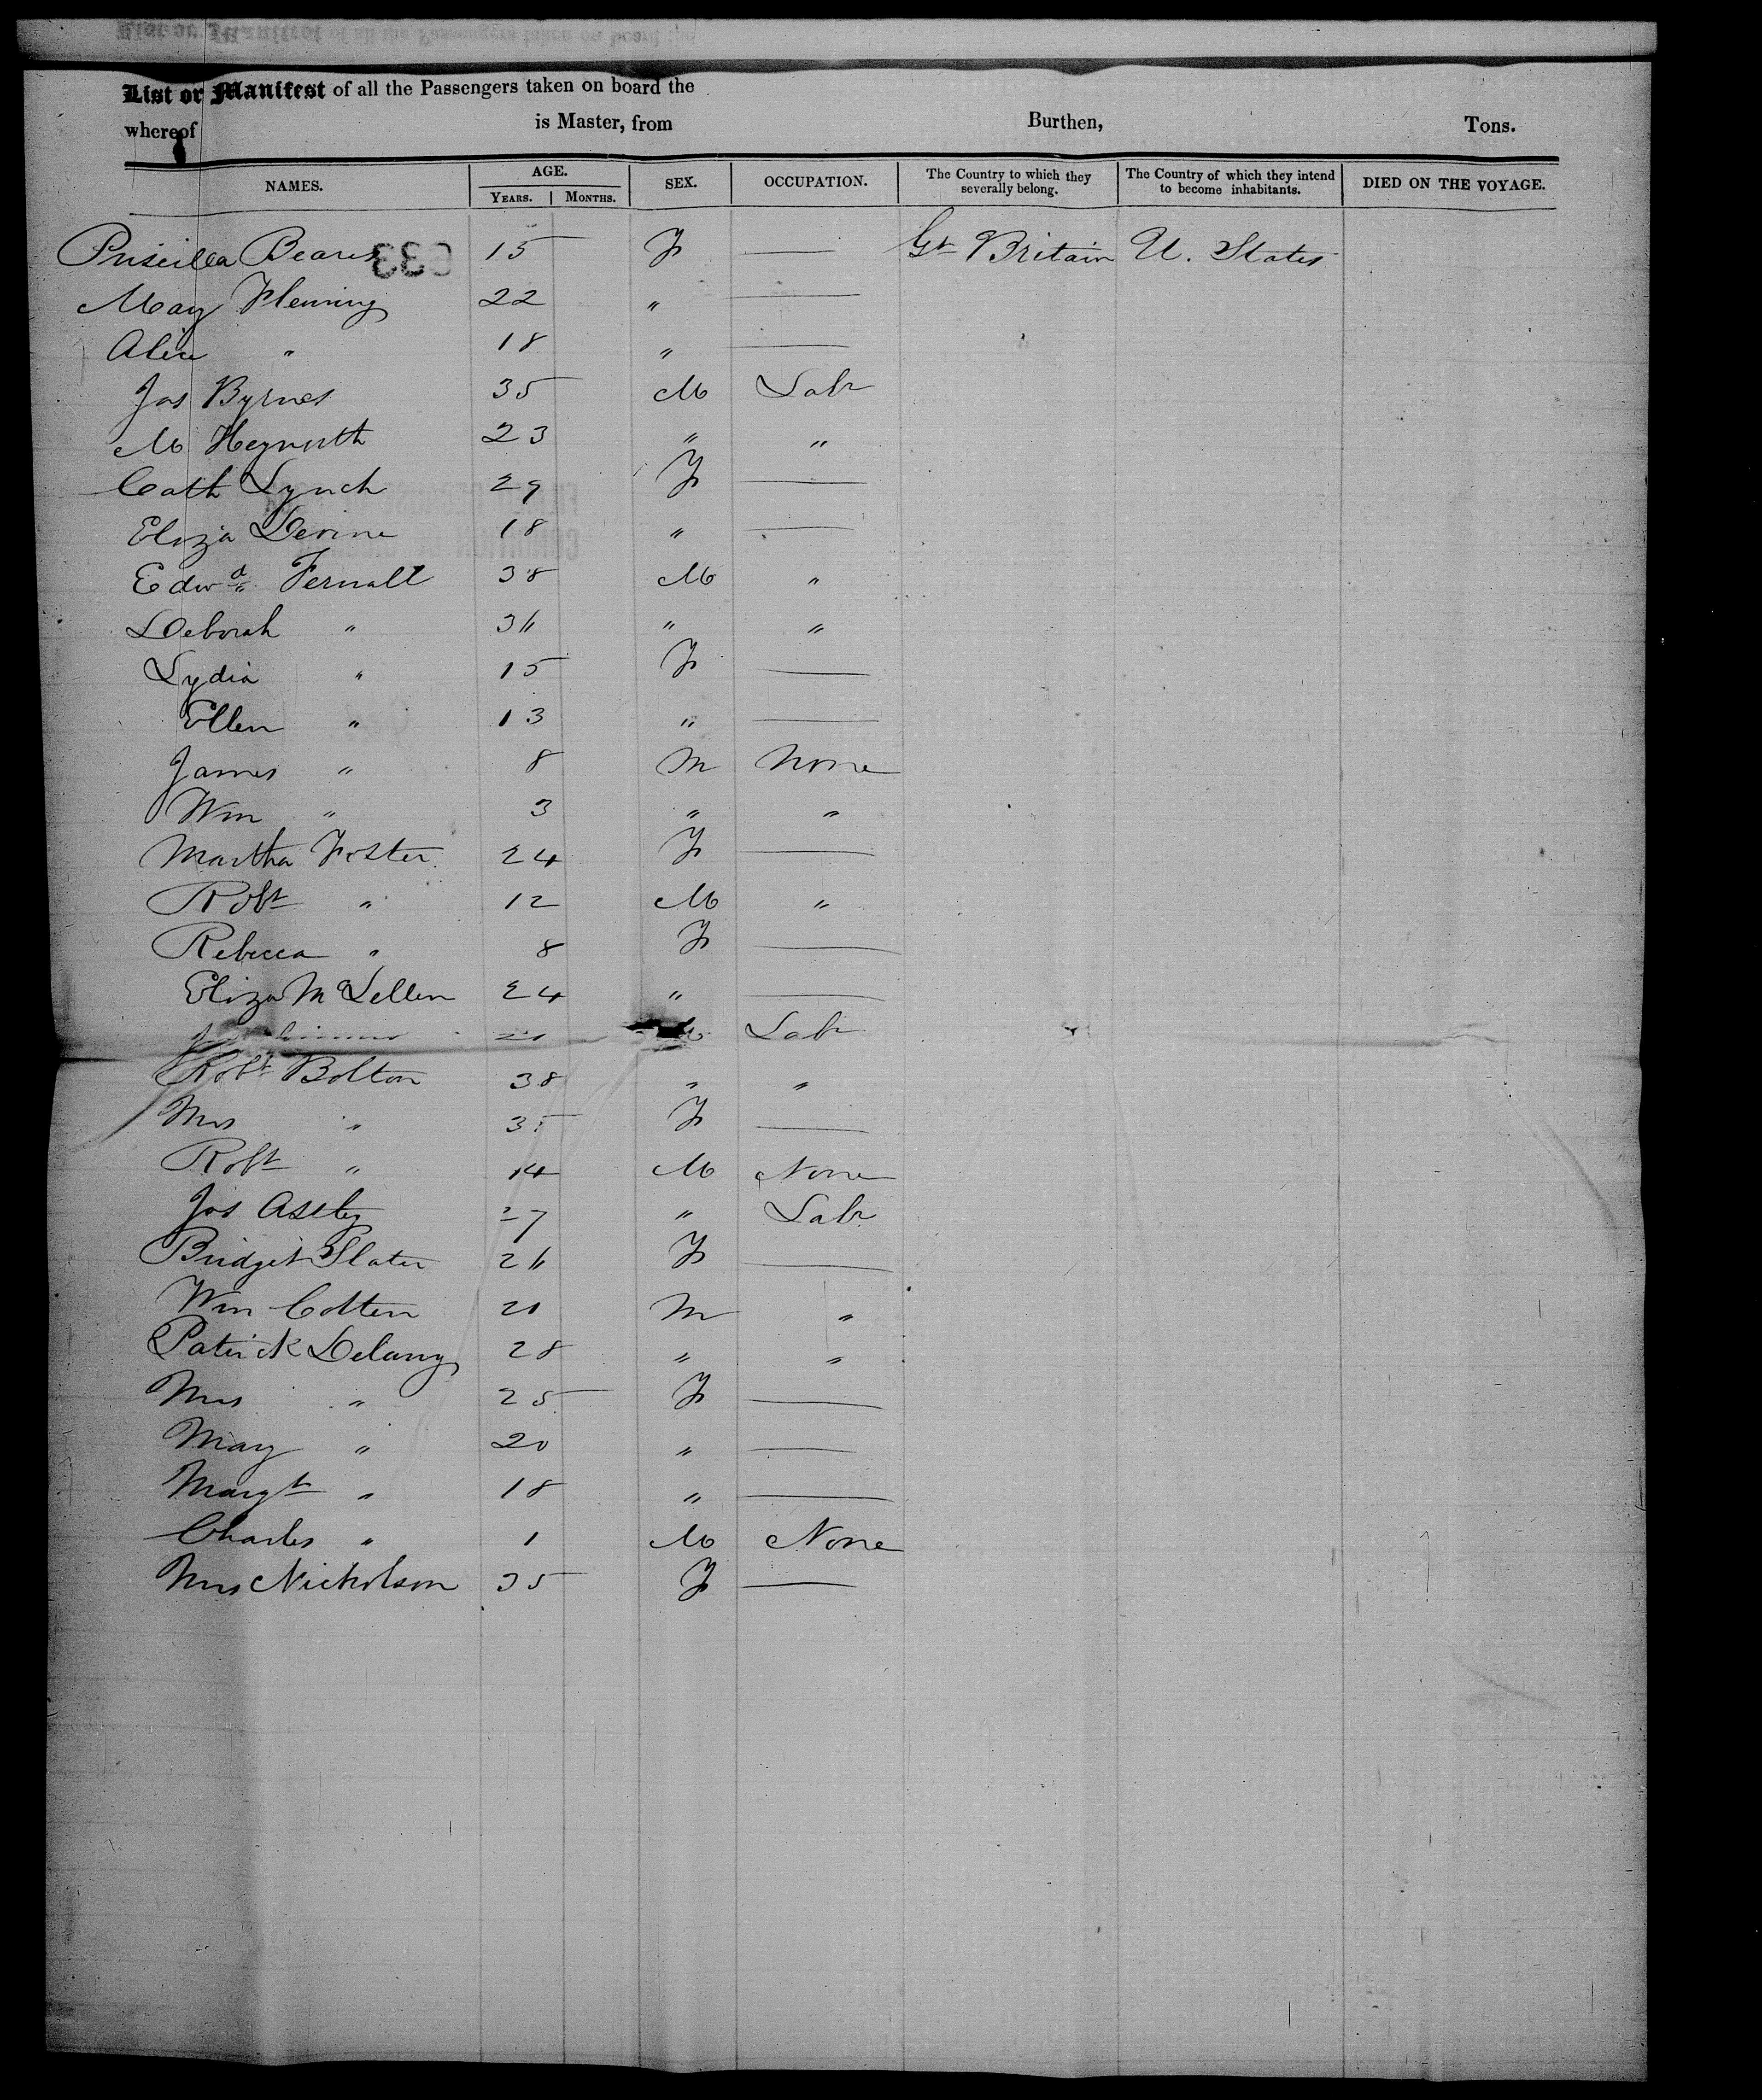 List or Manifest of all the Passengers taken on board the
whereof is Master, from Burthen, Tons.
NAMES. AGE. YEARS. MONTHS. SEX. OCCUPATION. The Country to which they severally belong. The Country of which they intend to become inhabitants. DIED ON THE VOYAGE.
Priscilla 15 F — Gt Britain U. States
May Fleming 22 " —
Alice " 18 " —
Jas Byrnes 35 M Labr
M 23 " "
Cath Lynch 29 F —
Eliza Devine 18 " —
Edwd Fernall 38 M "
Deborah " 36 " "
Lydia " 15 F —
Ellen " 13 " —
James " 8 M None
Wm " 3 " "
Martha Foster 24 F —
Robt " 12 M "
Rebecca " 8 F —
Eliza McLellen 24 " —
Labr
Robt Bolton 38 " "
Mrs " 35 F —
Robt " 14 M None
Jos Astley 27 " Labr
Bridget Slater 26 F —
Wm Cotten 20 M "
Patrick Delany 28 " "
Mrs " 25 F —
Mary " 20 " —
Margt " 18 " —
Charles " 1 M None
Mrs Nicholson 35 F —